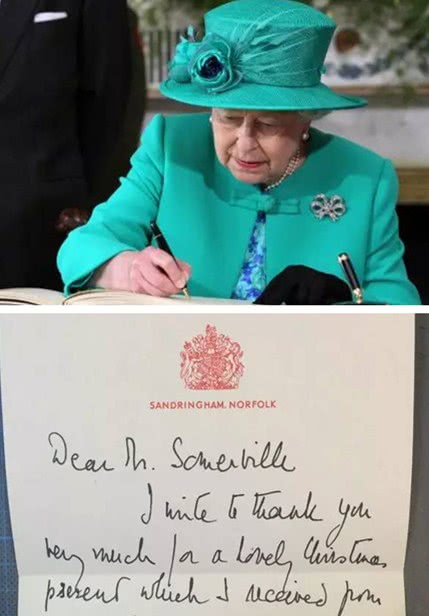 SANDRINGHAM. NORFOLK
Dear Mr. Somerville
I write to thank you
very much for a lovely Christmas
present which I received from